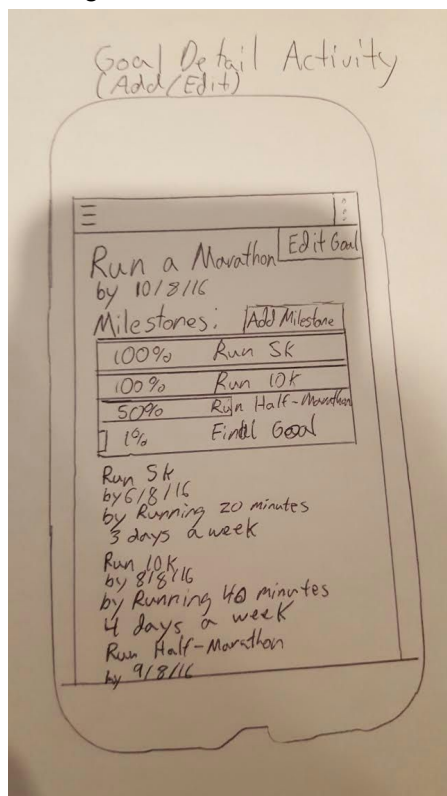 Goal Detail Activity
(Add/Edit)
Edit Goal
Run a Marathon
by 10/8/16
Milestones: Add Milestone
100% Run 5K
100% Run 10K
50% Run Half-Marathon
1% Final Goal
Run 5k
by 6/8/16
by Running 20 minutes
3 days a week
Run 10K
by 8/8/16
by Running 40 minutes
4 days a week
Run Half-Marathon
by 9/8/16